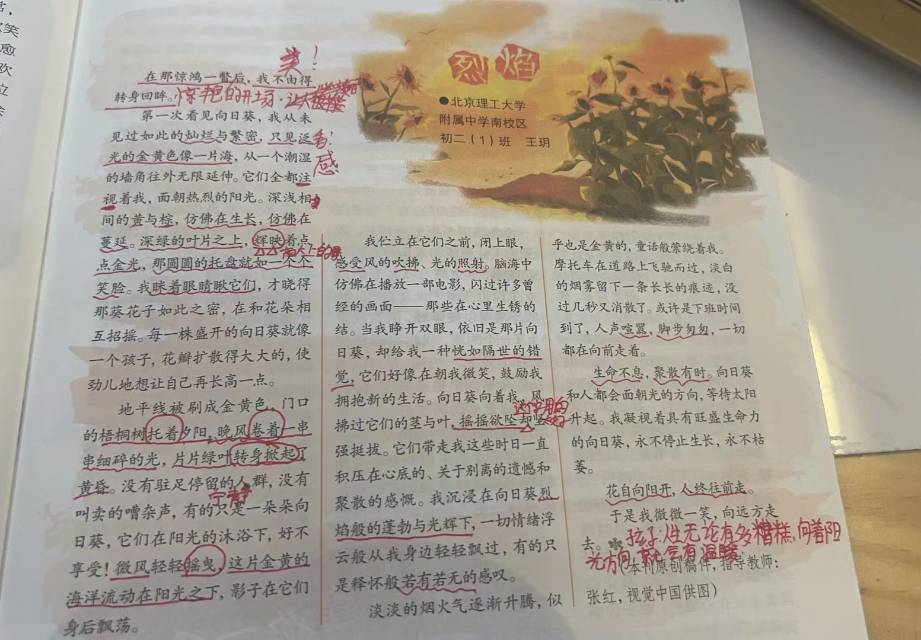 笑
愈
欢
位
美！
烈焰
●北京理工大学
附属中学南校区
初二（1）班 王玥
在那惊鸿一瞥后，我不由得
转身回眸。
惊艳的开场，让
第一次看见向日葵，我从未
见过如此的灿烂与繁密，只见泛
光的金黄色像一片海，从一个潮湿
的墙角往外无限延伸。它们全都注
视着我，面朝热烈的阳光。深浅相
间的黄与棕，仿佛在生长，仿佛在
蔓延。深绿的叶片之上，辉映着点
点金光，那圆圆的托盘就如一个个
笑脸。我眯着眼睛瞅它们，才晓得
那葵花子如此之密，在和花朵相
互招摇。每一株盛开的向日葵就像
一个孩子，花瓣扩散得大大的，使
劲儿地想让自己再长高一点。
感
地平线被刷成金黄色，门口
的梧桐树托着夕阳，晚风卷着一串
串细碎的光，片片绿叶转身掀起了
黄昏。没有驻足停留的人群，没有
叫卖的嘈杂声，有的只是一朵朵向
日葵，它们在阳光的沐浴下，好不
享受！微风轻轻摇曳，这片金黄的
海洋流动在阳光之下，影子在它们
身后飘荡。
宁静
我伫立在它们之前，闭上眼，
感受风的吹拂、光的照射。脑海中
仿佛在播放一部电影，闪过许多曾
经的画面——那些在心里生锈的
结。当我睁开双眼，依旧是那片向
日葵，却给我一种恍如隔世的错
觉，它们好像在朝我微笑，鼓励我
拥抱新的生活。向日葵向着我，风
拂过它们的茎与叶，摇摇欲坠却坚
强挺拔。它们带走我这些时日一直
积压在心底的、关于别离的遗憾和
聚散的感慨。我沉浸在向日葵烈
焰般的蓬勃与光辉下，一切情绪浮
云般从我身边轻轻飘过，有的只
是释怀般若有若无的感叹。
淡淡的烟火气逐渐升腾，似
乎也是金黄的，童话般萦绕着我。
摩托车在道路上飞驰而过，淡白
的烟雾留下一条长长的痕迹，没
过几秒又消散了。或许是下班时间
到了，人声喧嚣，脚步匆匆，一切
都在向前走着。
生命不息，聚散有时。向日葵
和人都会面朝光的方向，等待太阳
升起。我凝视着具有旺盛生命力
的向日葵，永不停止生长，永不枯
萎。
花自向阳开，人终往前走。
于是我微微一笑，向远方走
去。
孩子：生无论有多糟糕，向着阳
光方向，就会有温暖。
（本刊原创稿件，指导教师：
张红，视觉中国供图）